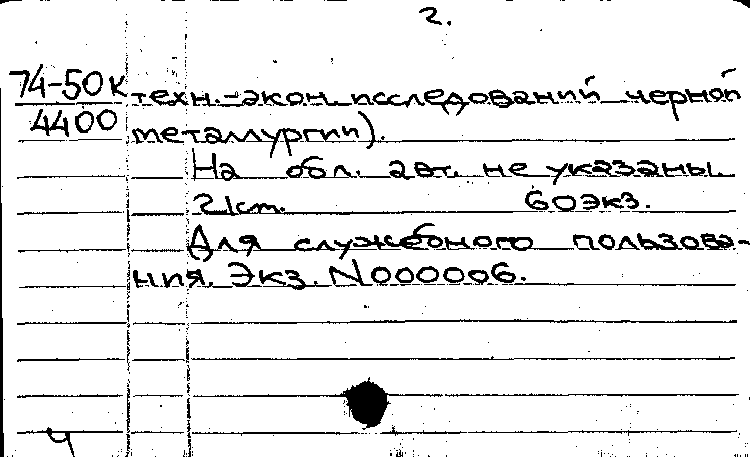 2.
74-50к техн.-экон. исследований черной
4400 металлургии).
На обл. авт. не указаны.
21 ст. 60 экз.
Для служебного пользова-
ния. Экз. N000006.
ч